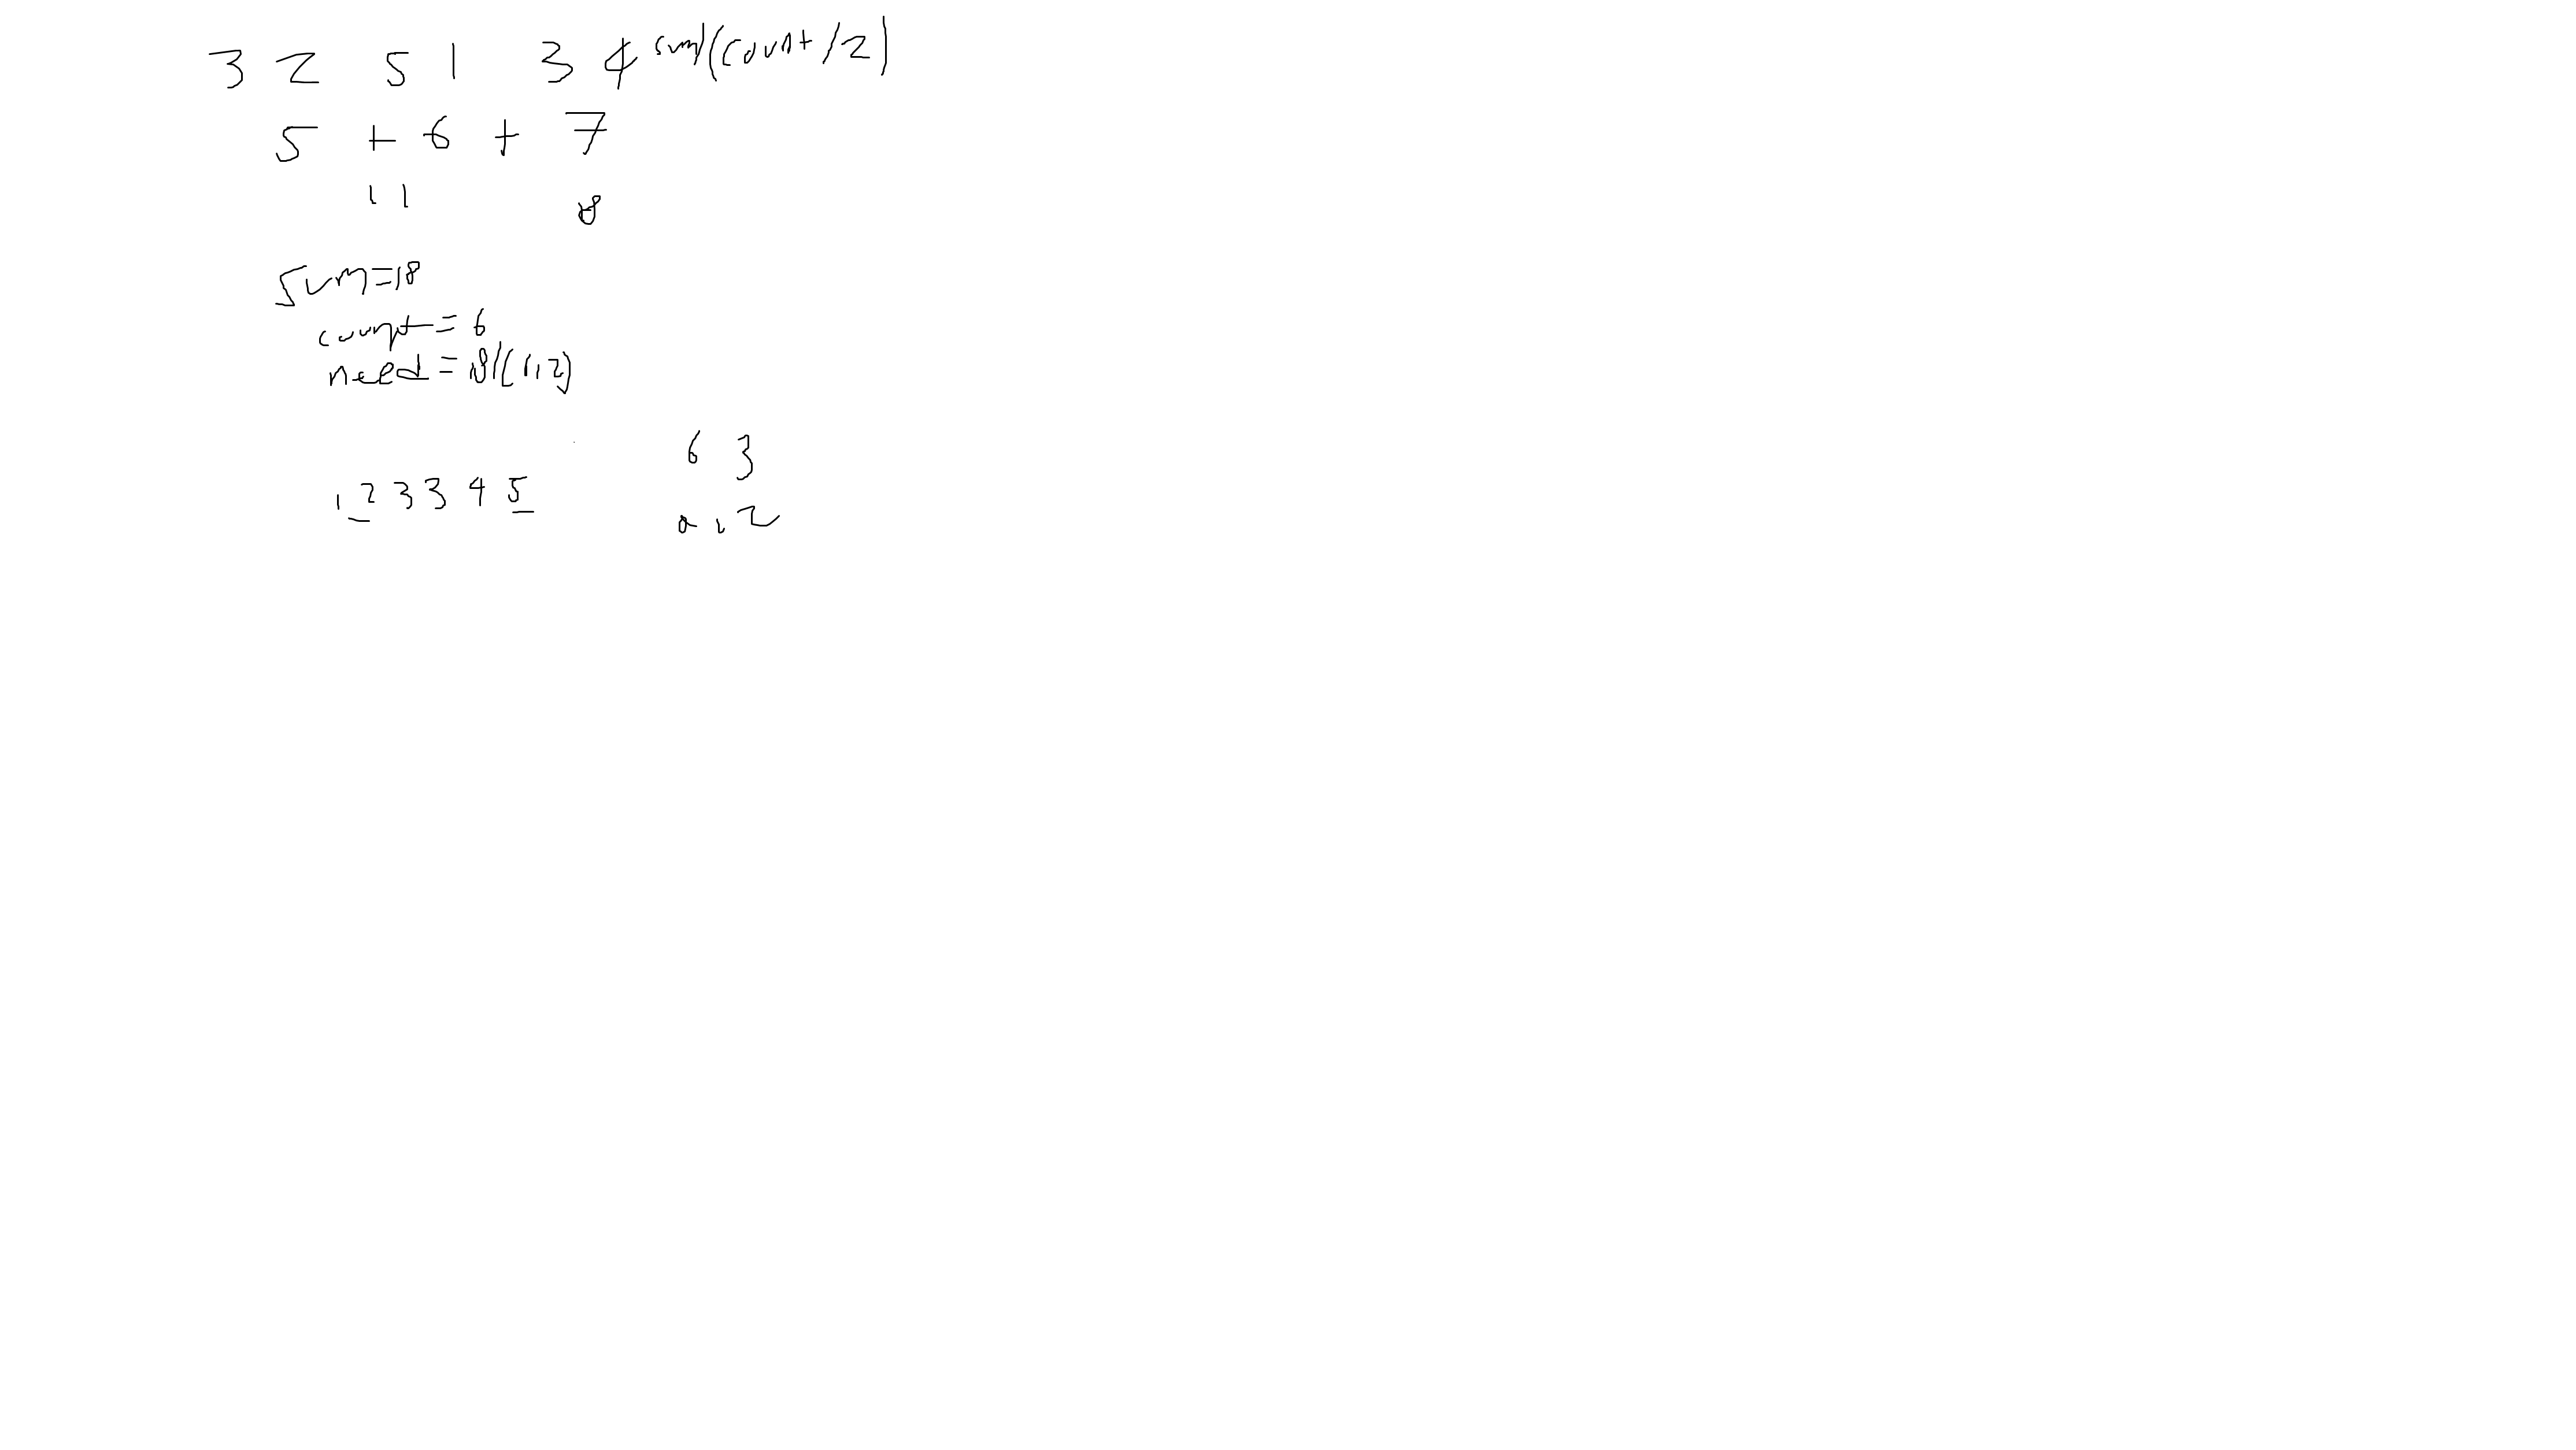 3 2 5 1 3 4 sum/(count/2)
5 + 6 + 7
11 18
sum=18
count = 6
need = 18/(
6 3
1 2 3 3 4 5
0 1 2